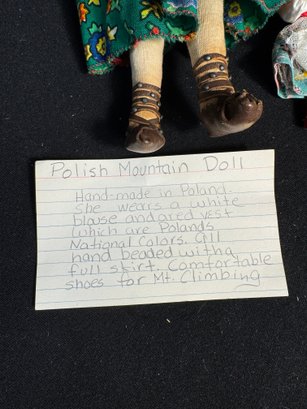 Polish Mountain Doll
Hand-made in Poland.
She wears a white
blouse and a red vest
(which are Polands
National Colors. All
hand beaded with a
full skirt. Comfortable
shoes for Mt. Climbing